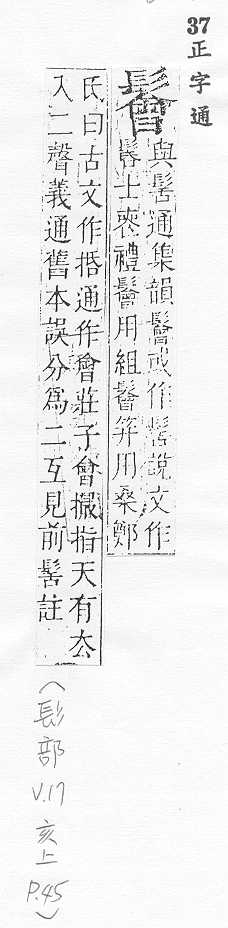 37正字通
鬠
與髺通集韻鬠或作髺說文作
䯻士喪禮鬠用組鬠筓用桑鄭
氏曰古文作括通作會莊子會撮指天有去
入二聲義通舊本誤分爲二互見前髺註
(髟部
V.17
亥上
P.45)